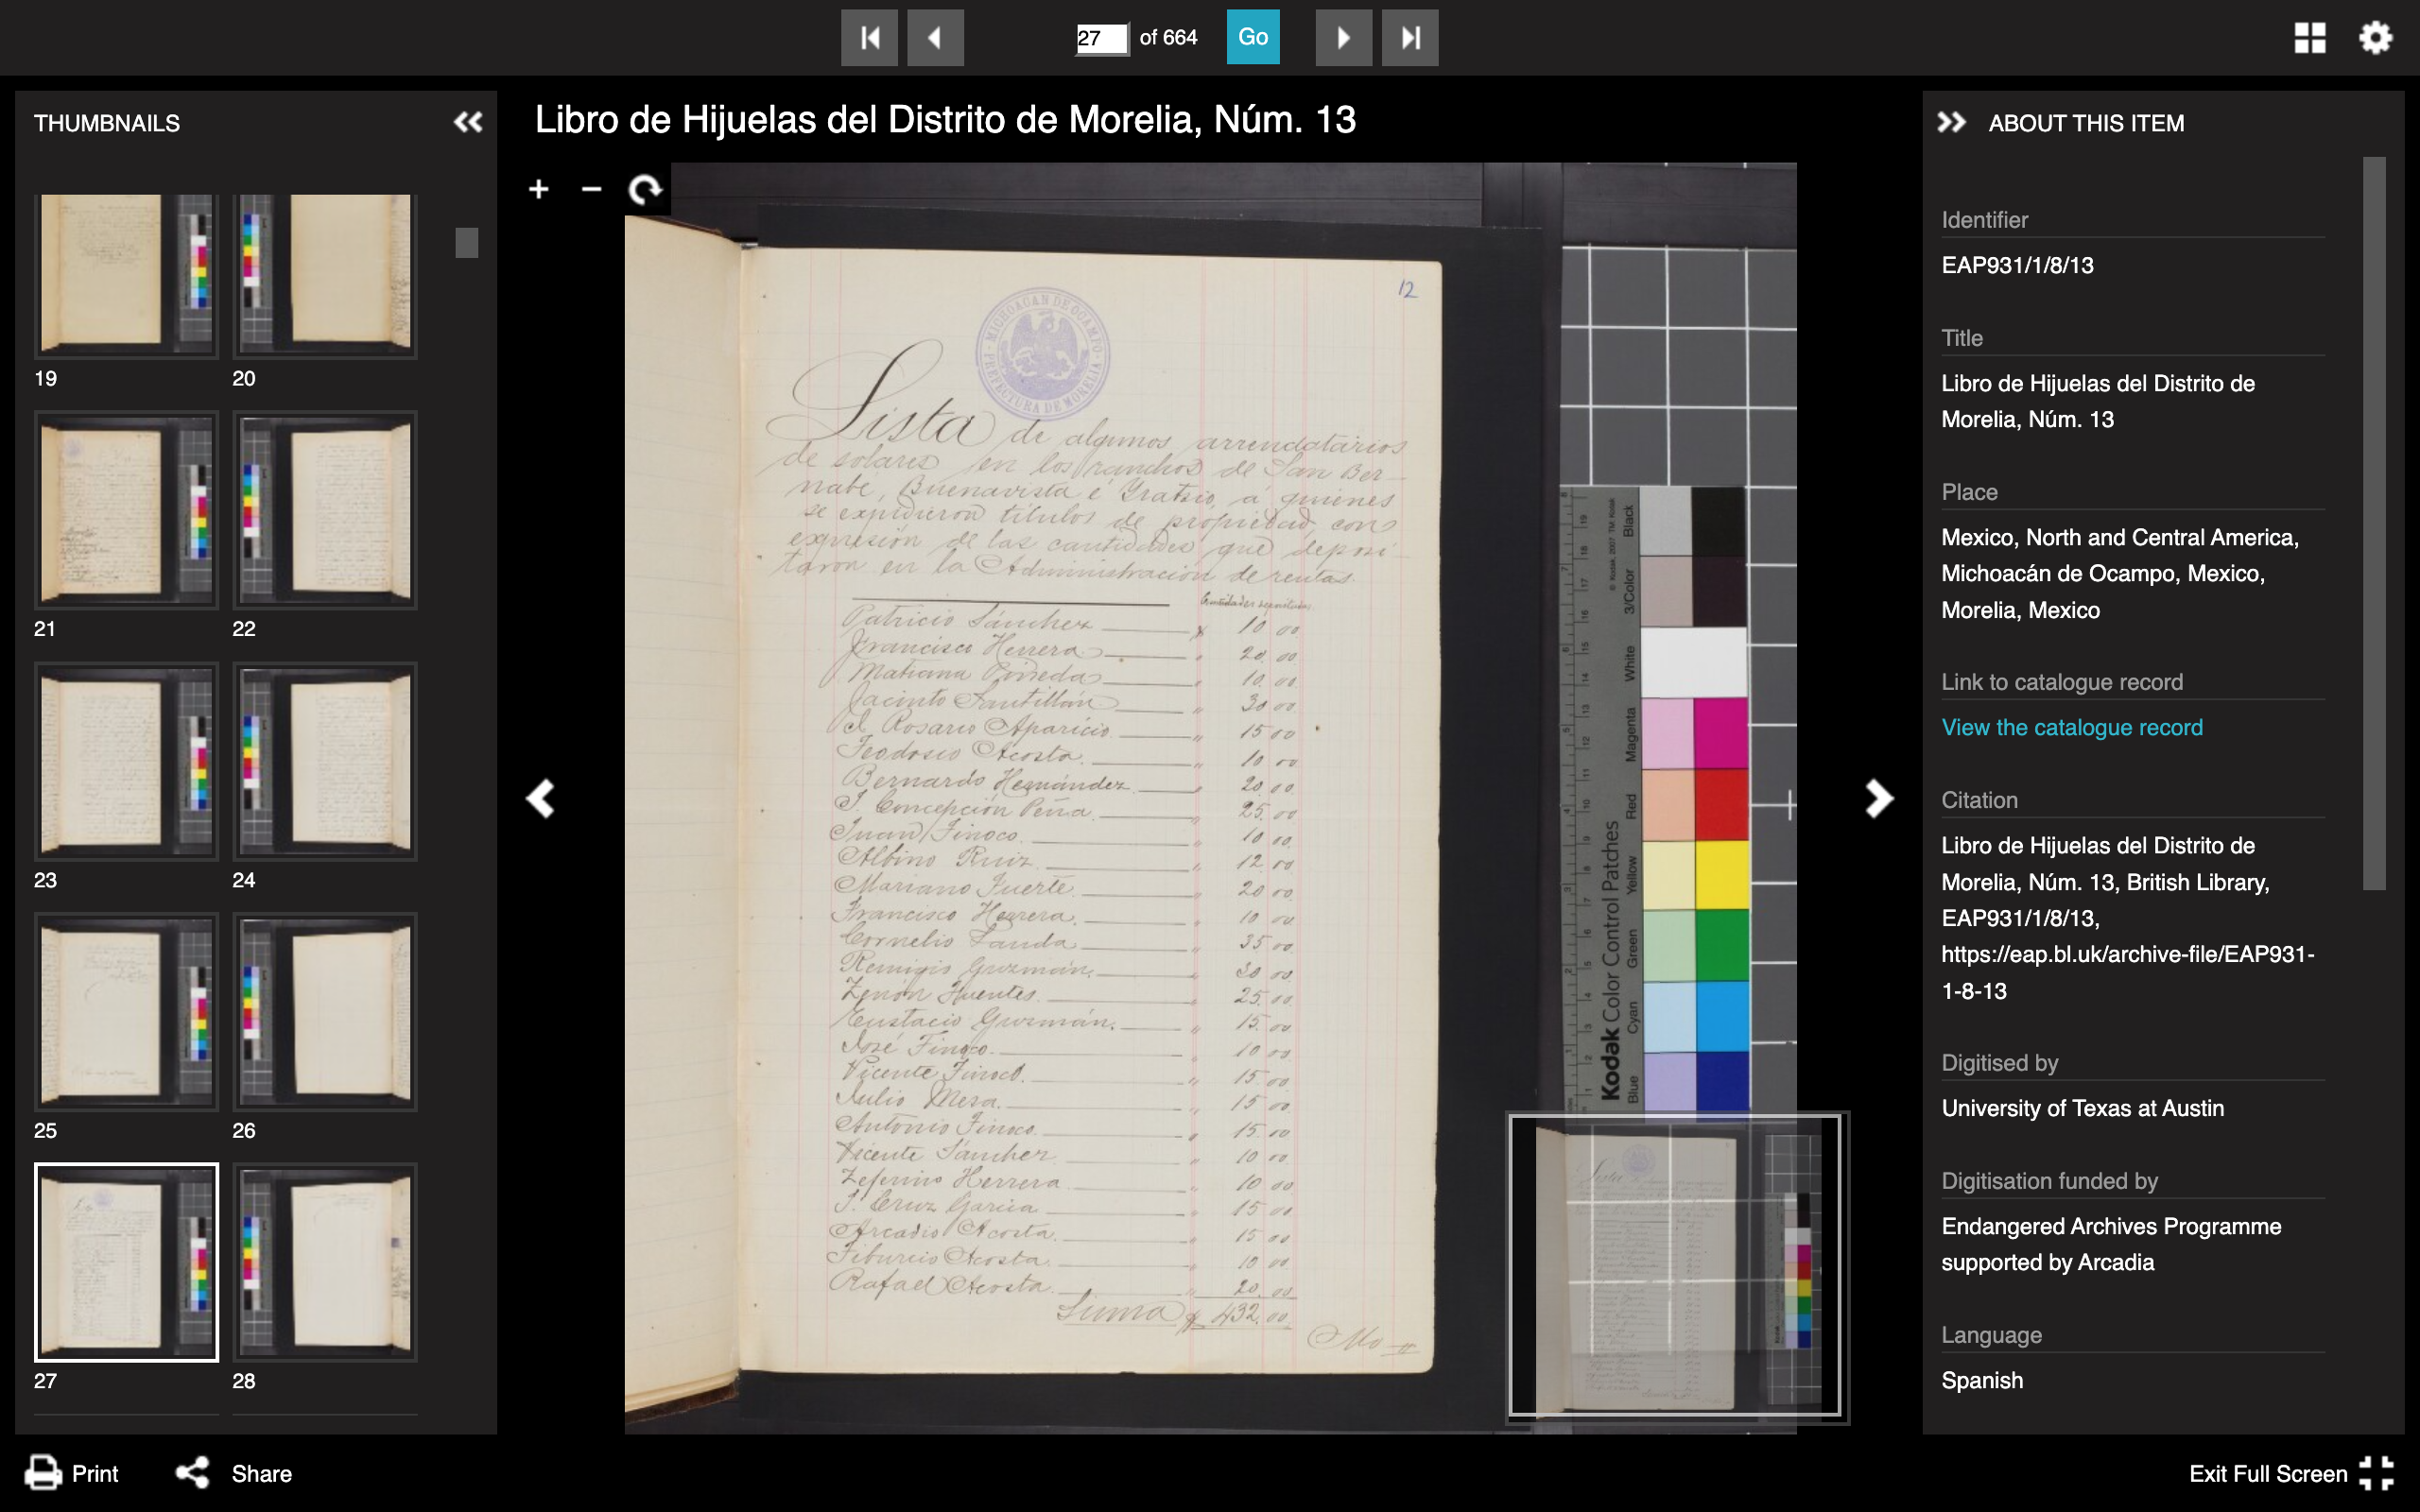 27 of 664 Go
THUMBNAILS
19 20
21 22
23 24
25 26
27 28
Libro de Hijuelas del Distrito de Morelia, Núm. 13
12
MICHOACAN DE OCAMPO
PREFECTURA DE MORELIA
Lista de algunos arrendatarios
de solares en los ranchos de San Ber-
nabe, Buenavista é Yratzio, á quienes
se expidieron titulos de propiedad, con
expresión de las cantidades que deposi-
taron en la Administración de rentas.
Patricio Sánchez $ 10 00
Francisco Herrera " 20 00
Matiana Pineda " 10 00
Jacinto Santillán " 30 00
J. Rosario Aparicio " 15 00
Teodosio Acosta " 10 00
Bernardo Hernández " 20 00
J. Concepción Peña " 25 00
Juan Tinoco " 10 00
Albino Ruiz " 12 00
Mariano Fuerte " 20 00
Francisco Herrera " 10 00
Cornelio Landa " 35 00
Remigio Guzmán " 30 00
Zenón Fuentes " 25 00
Eustacio Guzmán " 15 00
José Tinoco " 10 00
Vicente Tinoco " 15 00
Julio Mesa " 15 00
Antonio Tinoco " 15 00
Vicente Sánchez " 10 00
Zeferino Herrera " 10 00
J. Cruz Garcia " 15 00
Arcadio Acosta " 15 00
Tiburcio Acosta " 10 00
Rafael Acosta " 20 00
Suma $ 432.00
© Kodak, 2007 TM: Kodak
Kodak Color Control Patches
Blue Cyan Green Yellow Red Magenta White 3/Color Black
ABOUT THIS ITEM
Identifier
EAP931/1/8/13
Title
Libro de Hijuelas del Distrito de
Morelia, Núm. 13
Place
Mexico, North and Central America,
Michoacán de Ocampo, Mexico,
Morelia, Mexico
Link to catalogue record
View the catalogue record
Citation
Libro de Hijuelas del Distrito de
Morelia, Núm. 13, British Library,
EAP931/1/8/13,
https://eap.bl.uk/archive-file/EAP931-
1-8-13
Digitised by
University of Texas at Austin
Digitisation funded by
Endangered Archives Programme
supported by Arcadia
Language
Spanish
Print Share
Exit Full Screen